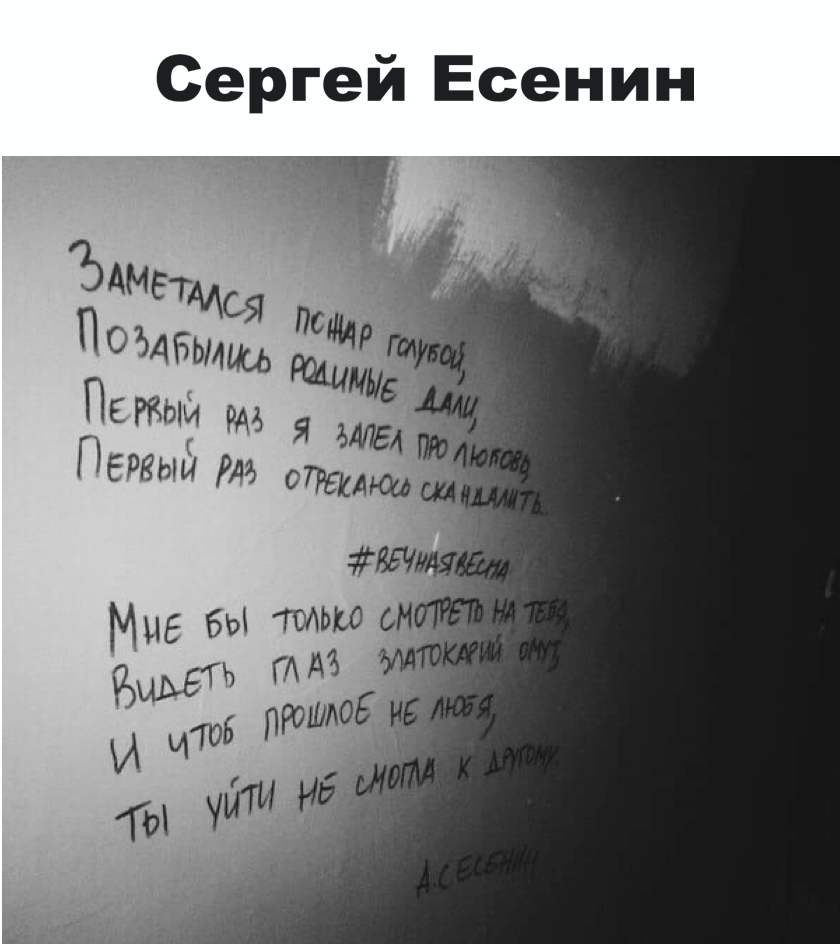 Сергей Есенин
Заметался пожар голубой,
Позабылись родимые дали,
Первый раз я запел про любовь,
Первый раз отрекаюсь скандалить.
#вечнаявесна
Мне бы только смотреть на тебя,
Видеть глаз златокарий омут,
И чтоб прошлое не любя,
Ты уйти не смогла к другому.
А.С Есенин